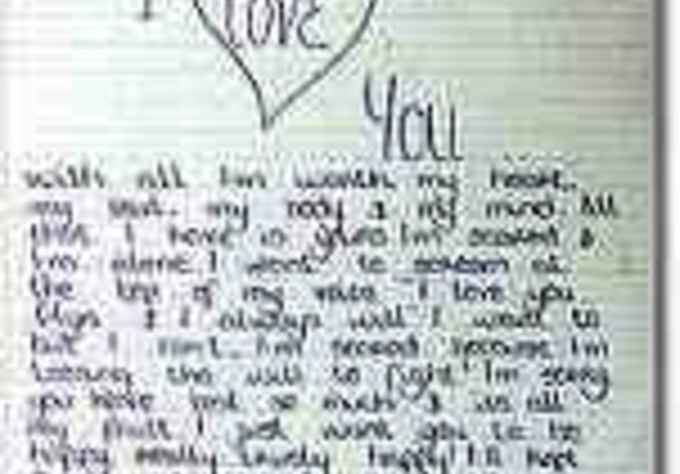 I
LOVE
YOU
with all I'm worth my heart,
my soul, my body & my mind. All
that I have is I'm scared &
I'm alone I want to scream at
the top of my voice "I love you
& I always will" I want to
but I can't. I'm scared because I'm
the will to fight! I'm sorry
you have lost so much & its all
my fault I just want you to be
happy really truely happy! I'll